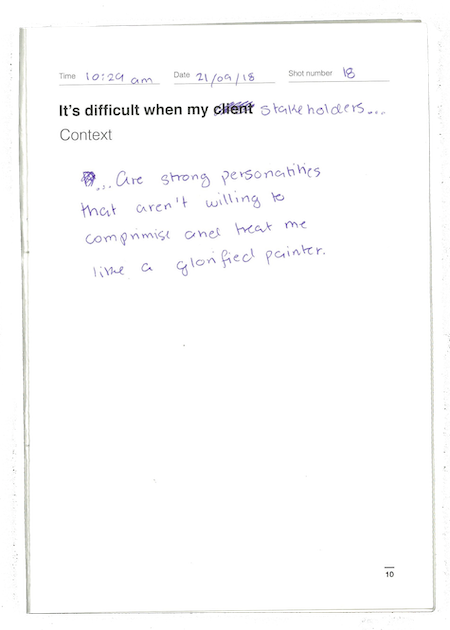 Time 10:29 am Date 21/09/18 Shot number 18
It's difficult when my client stakeholders...
Context
... Are strong personalities
that aren't willing to
comprimise and treat me
like a glorified painter.
10